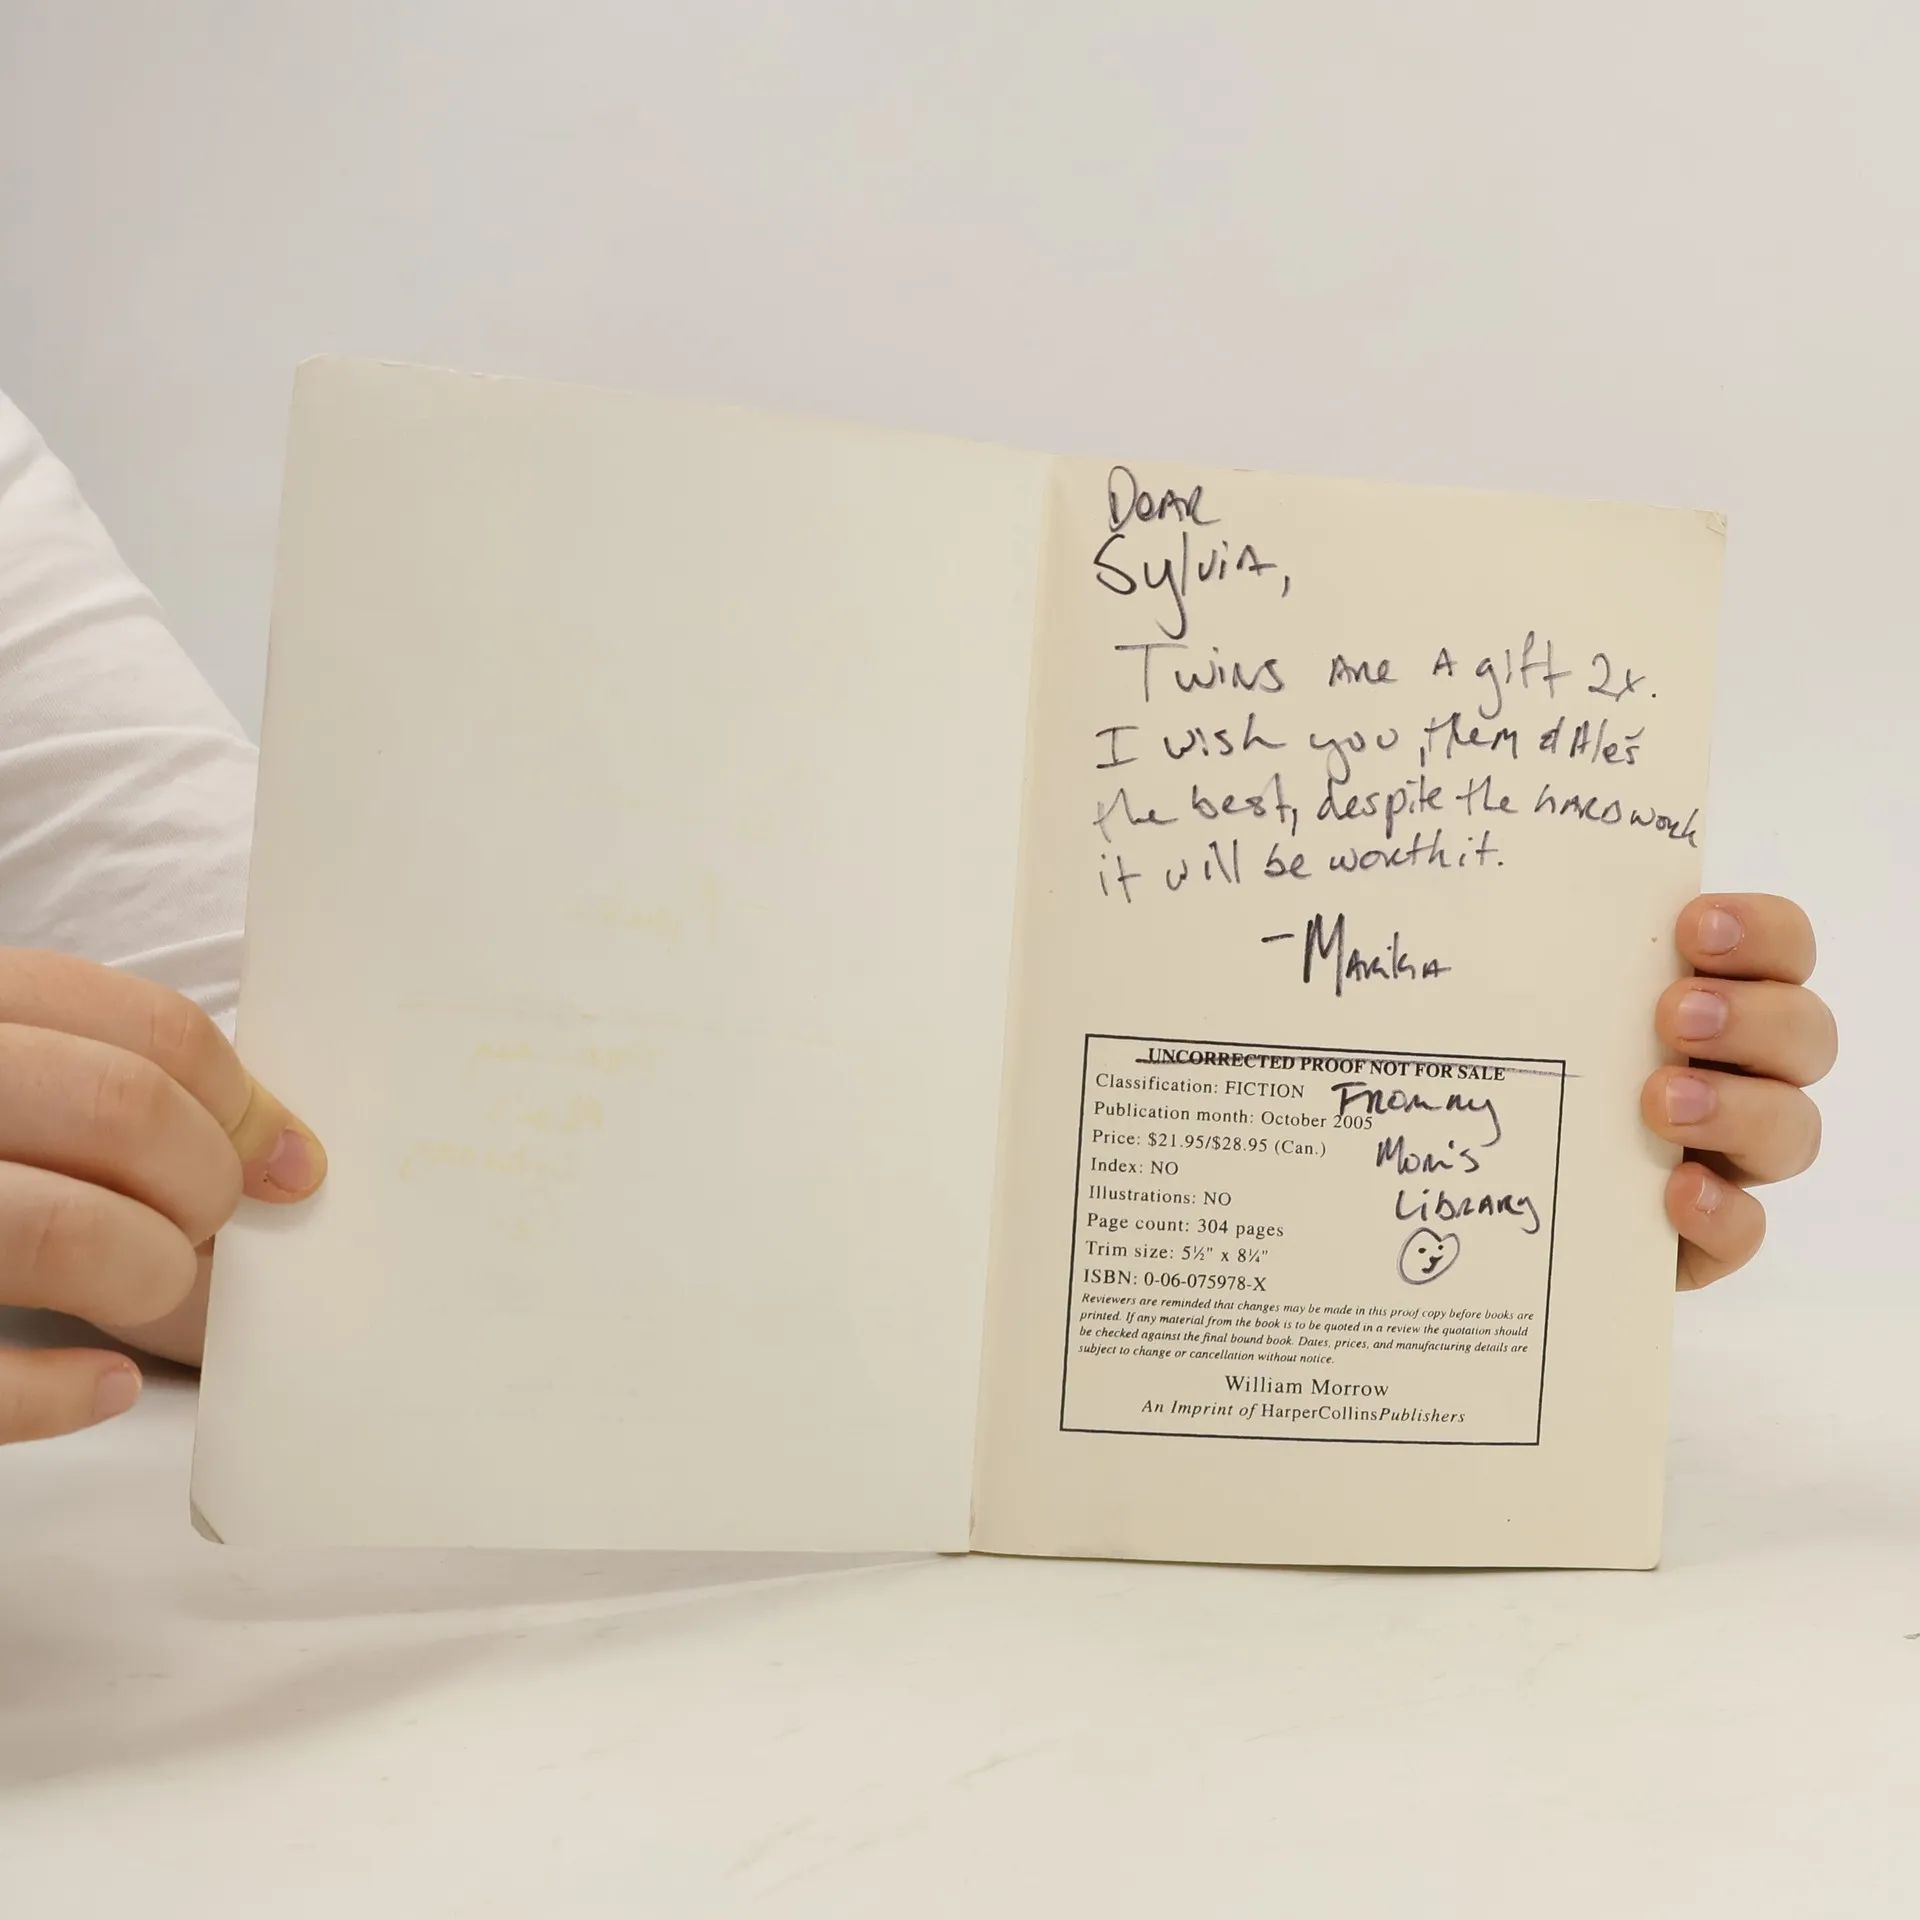 DEAR
Sylvia,
Twins are a gift 2x.
I wish you, them & Aleš
the best, despite the hard work
it will be worth it.
- Marika
UNCORRECTED PROOF NOT FOR SALE
Classification: FICTION
From my
Publication month: October 2005
Price: $21.95/$28.95 (Can.)
Mom's
Index: NO
Illustrations: NO
Library
Page count: 304 pages
Trim size: 5½" x 8¼"
ISBN: 0-06-075978-X
Reviewers are reminded that changes may be made in this proof copy before books are
printed. If any material from the book is to be quoted in a review the quotation should
be checked against the final bound book. Dates, prices, and manufacturing details are
subject to change or cancellation without notice.
William Morrow
An Imprint of HarperCollinsPublishers